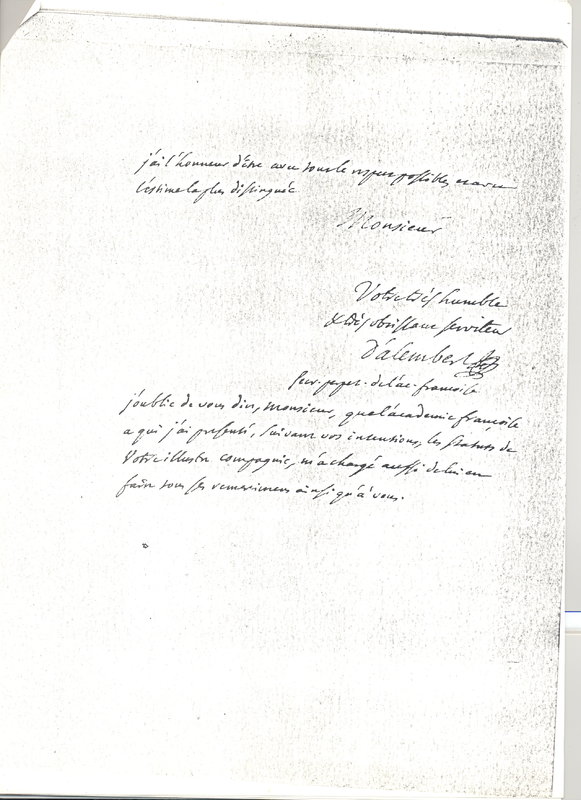 j'ai l'honneur d'être avec tout le respect possible, et avec
l'estime la plus distinguée
Monsieur
Votre très humble
& très obéissant serviteur
D'alembert
Secr. perpet. de l'ac. françoise
j'oublie de vous dire, monsieur, que l'académie françoise
a qui j'ai présenté, suivant vos intentions, les statuts de
Votre illustre compagnie, m'a chargé aussi de lui en
faire tous ses remerciemens ainsi qu'à vous.